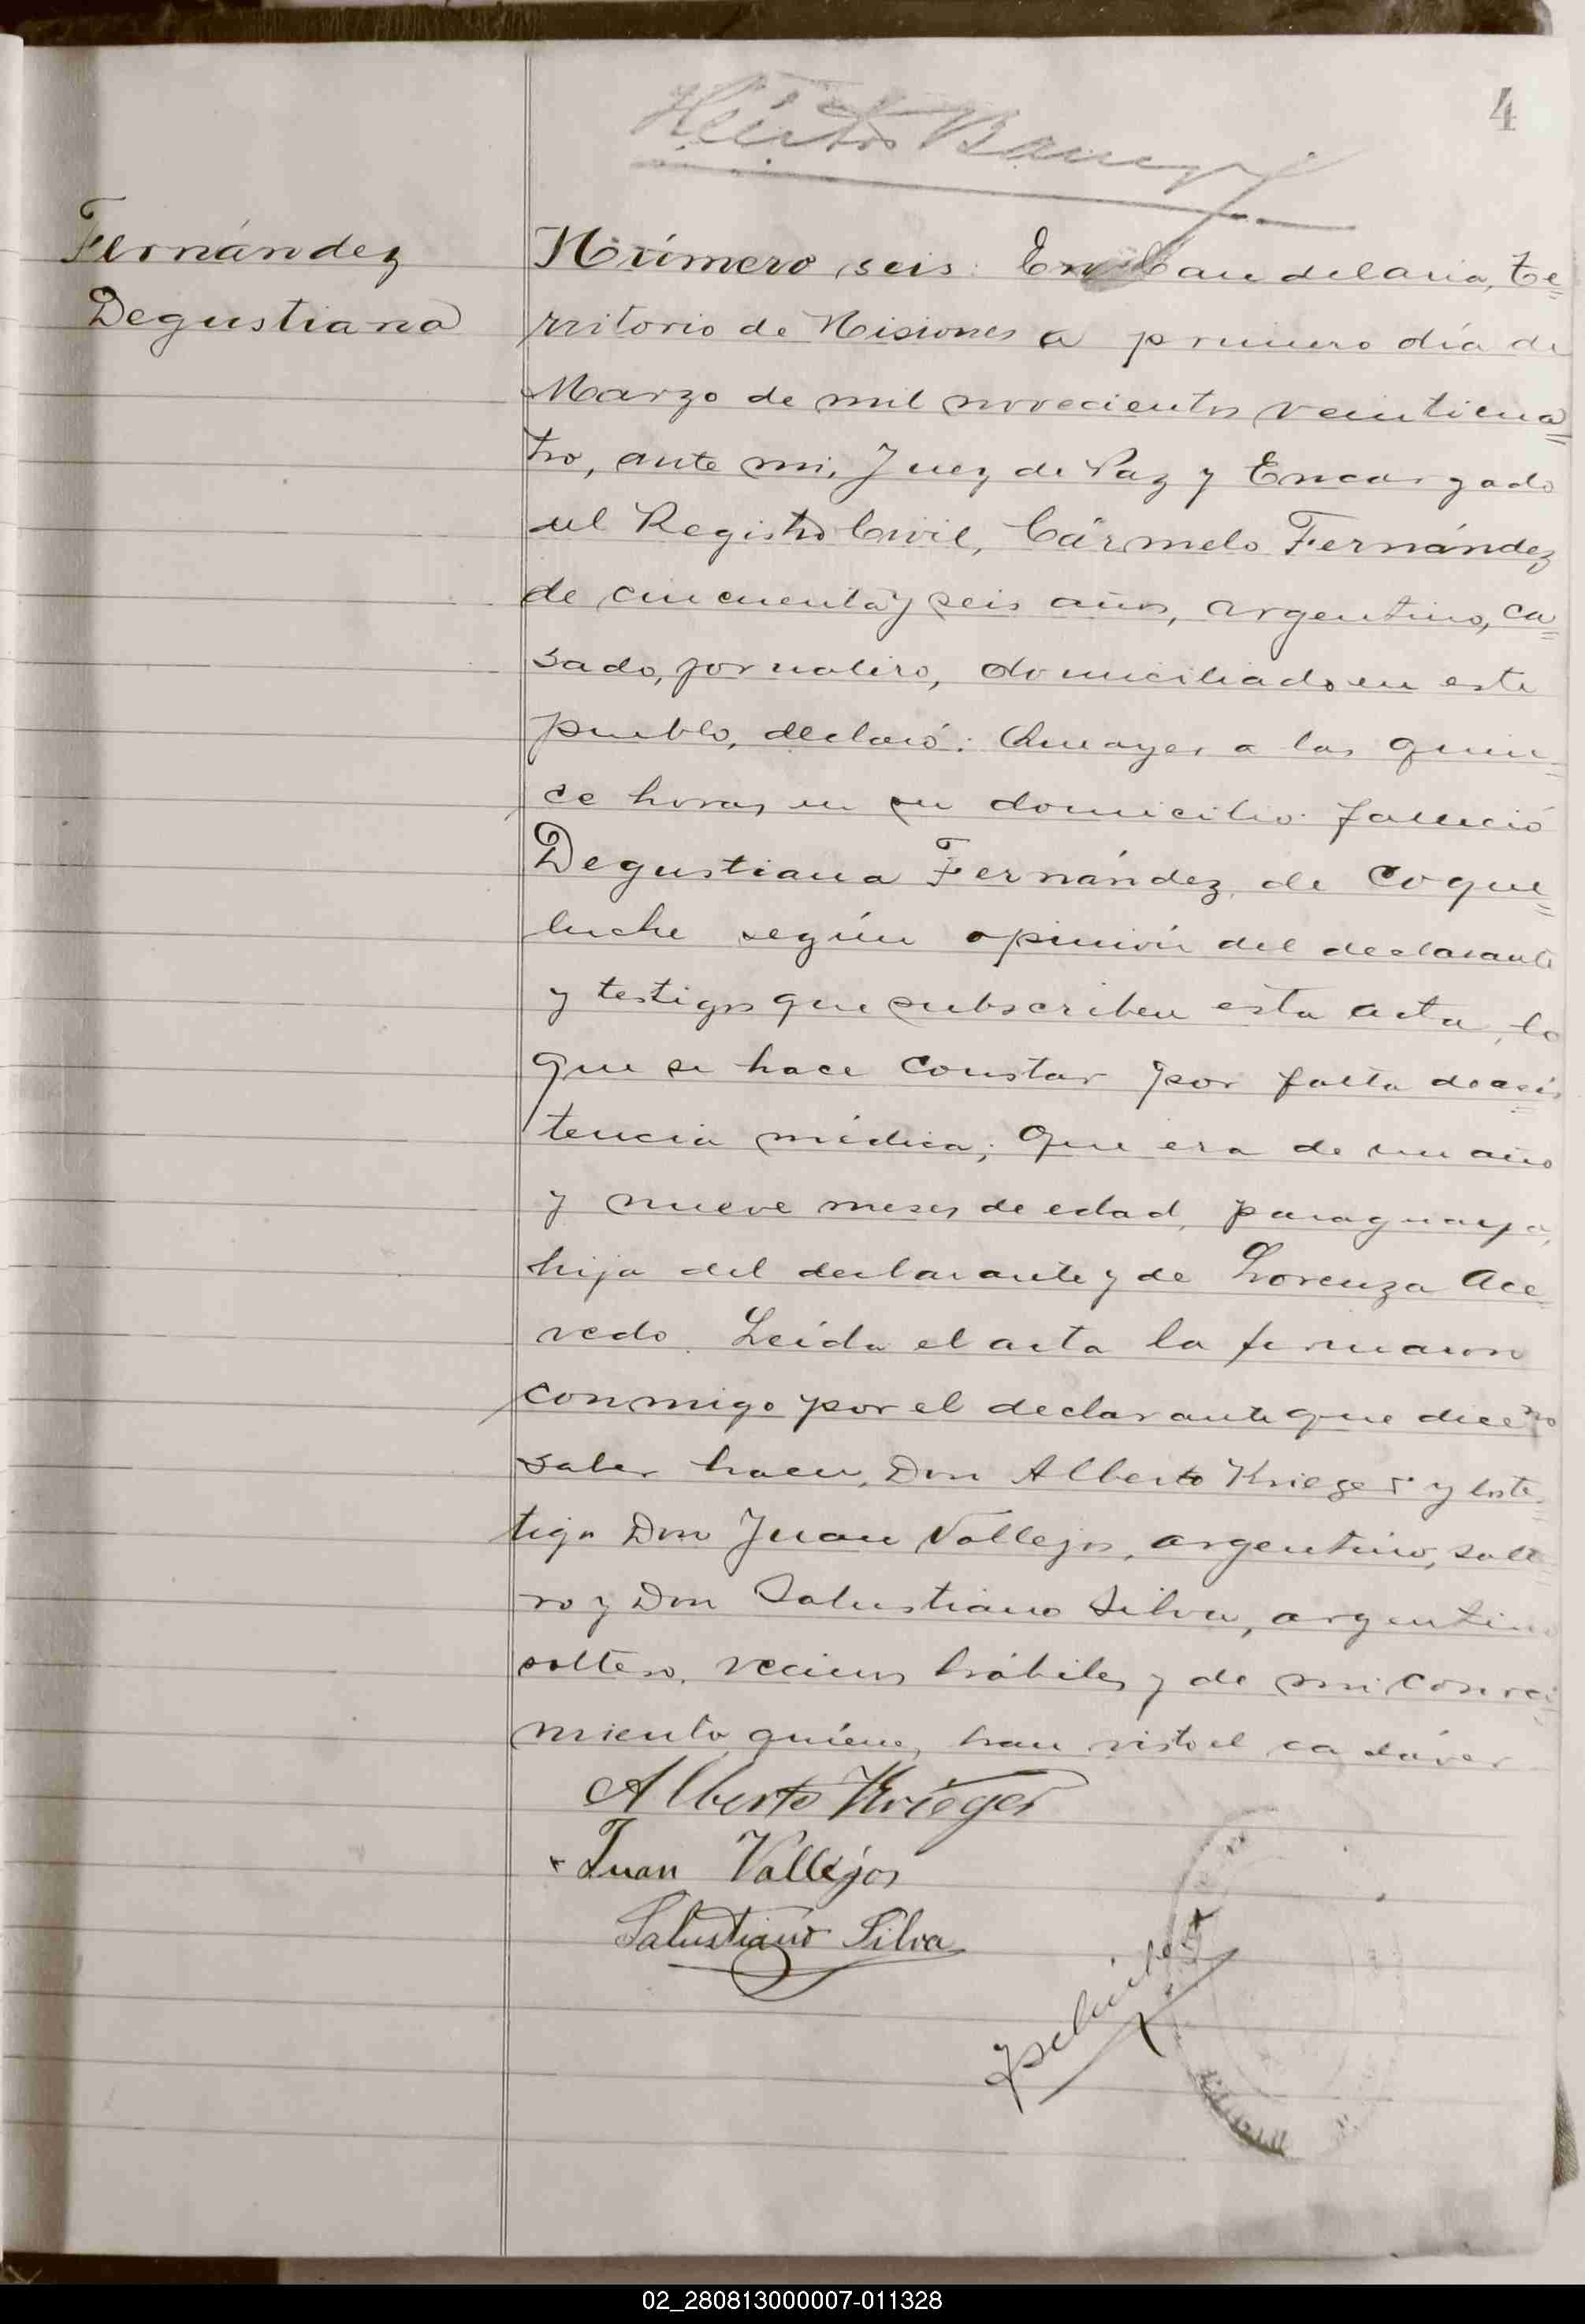 4
Fernández
Degustiana
Número seis: En Candelaria, Te=
rritorio de Misiones a primero día de
Marzo de mil novecientos veinticua=
tro, ante mi, Juez de Paz y Encargado
del Registro Civil, Cármelo Fernández
de cincuenta y seis años, argentino, ca=
sado, jornalero, domiciliado en este
pueblo, declaró: Que ayer a las quin=
ce horas en su domicilio falleció
Degustiana Fernández, de coque=
luche según opinión del declarante
y testigos que subscriben esta acta, lo
que se hace constar por falta de asis
tencia médica; Que era de un año
y nueve meses de edad, paraguaya,
hija del declarante y de Lorenza Ace=
vedo. Leída el acta la firmaron
conmigo por el declarante que dice no
saber hacer, Don Alberto Krieger y los te=
tigo Don Juan Vallejos, argentino, solte
ro y Don Salustiano Silva, argentino
soltero, vecinos hábiles y de mi conoci
miento quiénes han visto el cadáver
Alberto Krieger
Juan Vallejos
Salustiano Silva
02_280813000007-011328